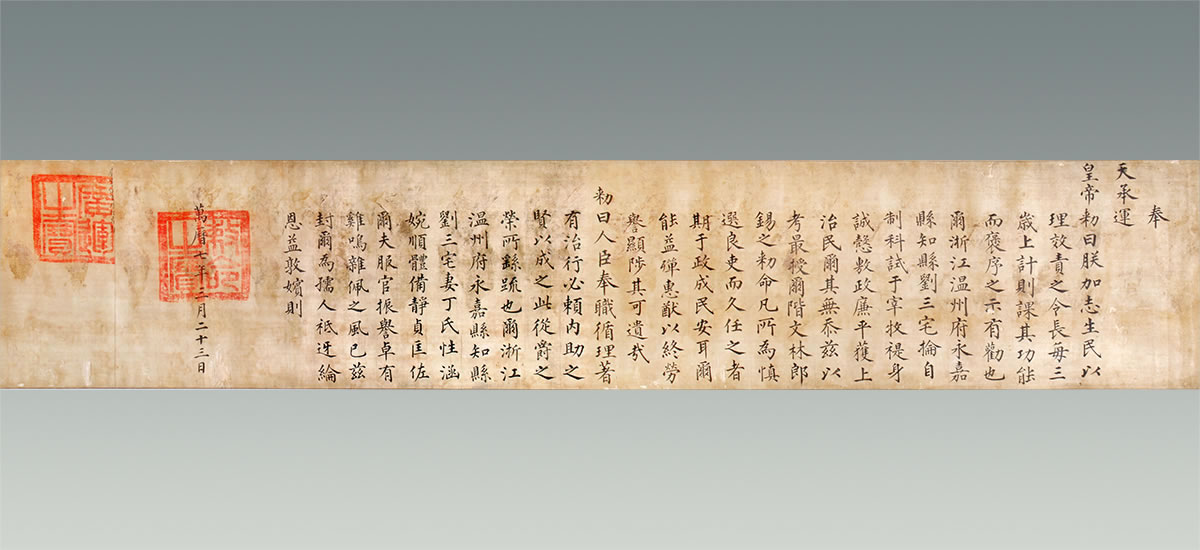 奉
天承運
皇帝勑曰朕加志生民以
理效責之令長每三
歲上計則課其功能
而褒序之示有勸也
爾浙江溫州府永嘉
縣知縣劉三宅掄自
制科試于宰牧禔身
誠慤敷政廉平獲上
治民爾其無忝茲以
考最授爾階文林郎
錫之勑命凡所為慎
選良吏而久任之者
期于政成民安耳爾
能益殫惠猷以終勞
譽顯陟其可遺哉
勑曰人臣奉職循理著
有治行必賴內助之
賢以成之此從爵之
榮所繇踈也爾浙江
溫州府永嘉縣知縣
劉三宅妻丁氏性涵
婉順體備靜貞匡佐
爾夫服官振譽卓有
雞鳴雜佩之風已茲
封爾為孺人祗迓綸
恩益敦嬪則
萬曆七年二月二十三日
敕命之寶
廣運之寶